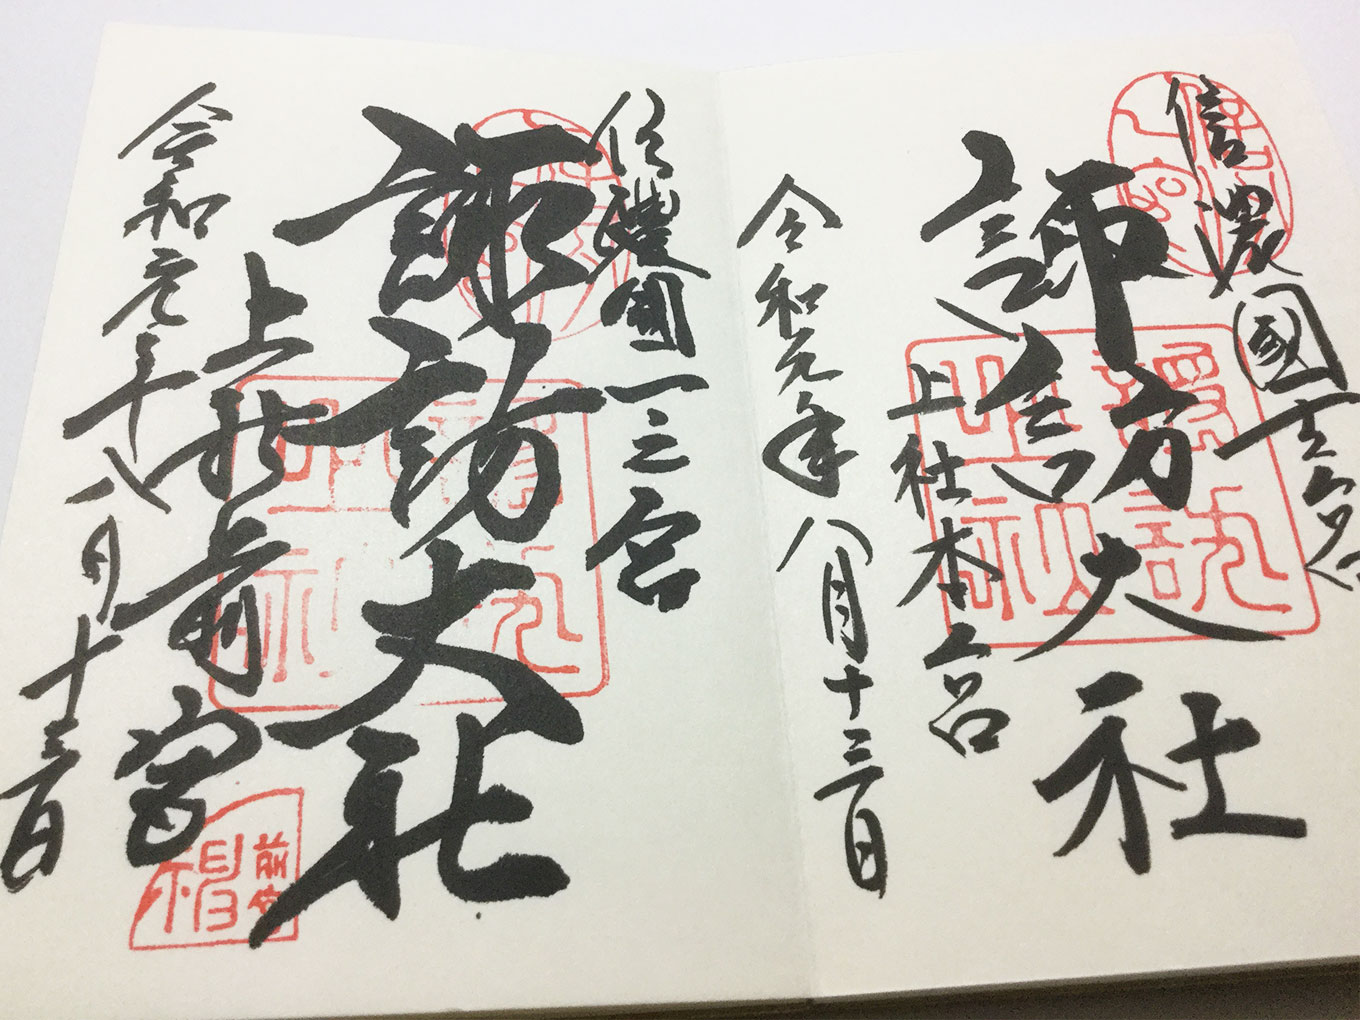 信濃國一之宮
諏訪大社
上社本宮
令和元年八月十三日
信濃國一之宮
諏訪大社
上社前宮
令和元年八月十三日
前宮